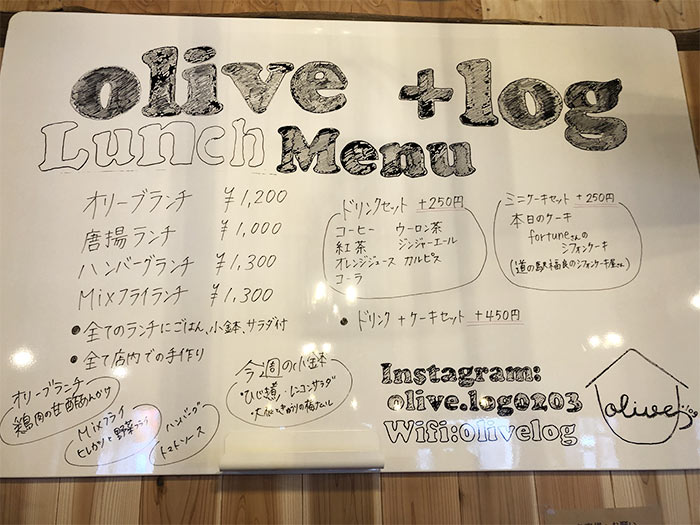 olive +log
Lunch Menu
オリーブランチ ¥1,200
唐揚ランチ ¥1,000
ハンバーグランチ ¥1,300
Mixフライランチ ¥1,300
• 全てのランチにごはん、小鉢、サラダ付
• 全て店内での手作り
オリーブランチ
鶏肉の甘酢あんかけ
Mixフライ
ヒレカツと野菜フライ
ハンバーグ
トマトソース
今週の小鉢
ひじき煮・レンコンサラダ
ドリンクセット +250円
コーヒー ウーロン茶
紅茶 ジンジャーエール
オレンジジュース カルピス
コーラ
ミニケーキセット +250円
本日のケーキ
fortuneさんの
シフォンケーキ
(道の駅福良のシフォンケーキ屋さん)
• ドリンク + ケーキセット +450円
Instagram:
olive.log0203
Wifi:Olivelog
olive